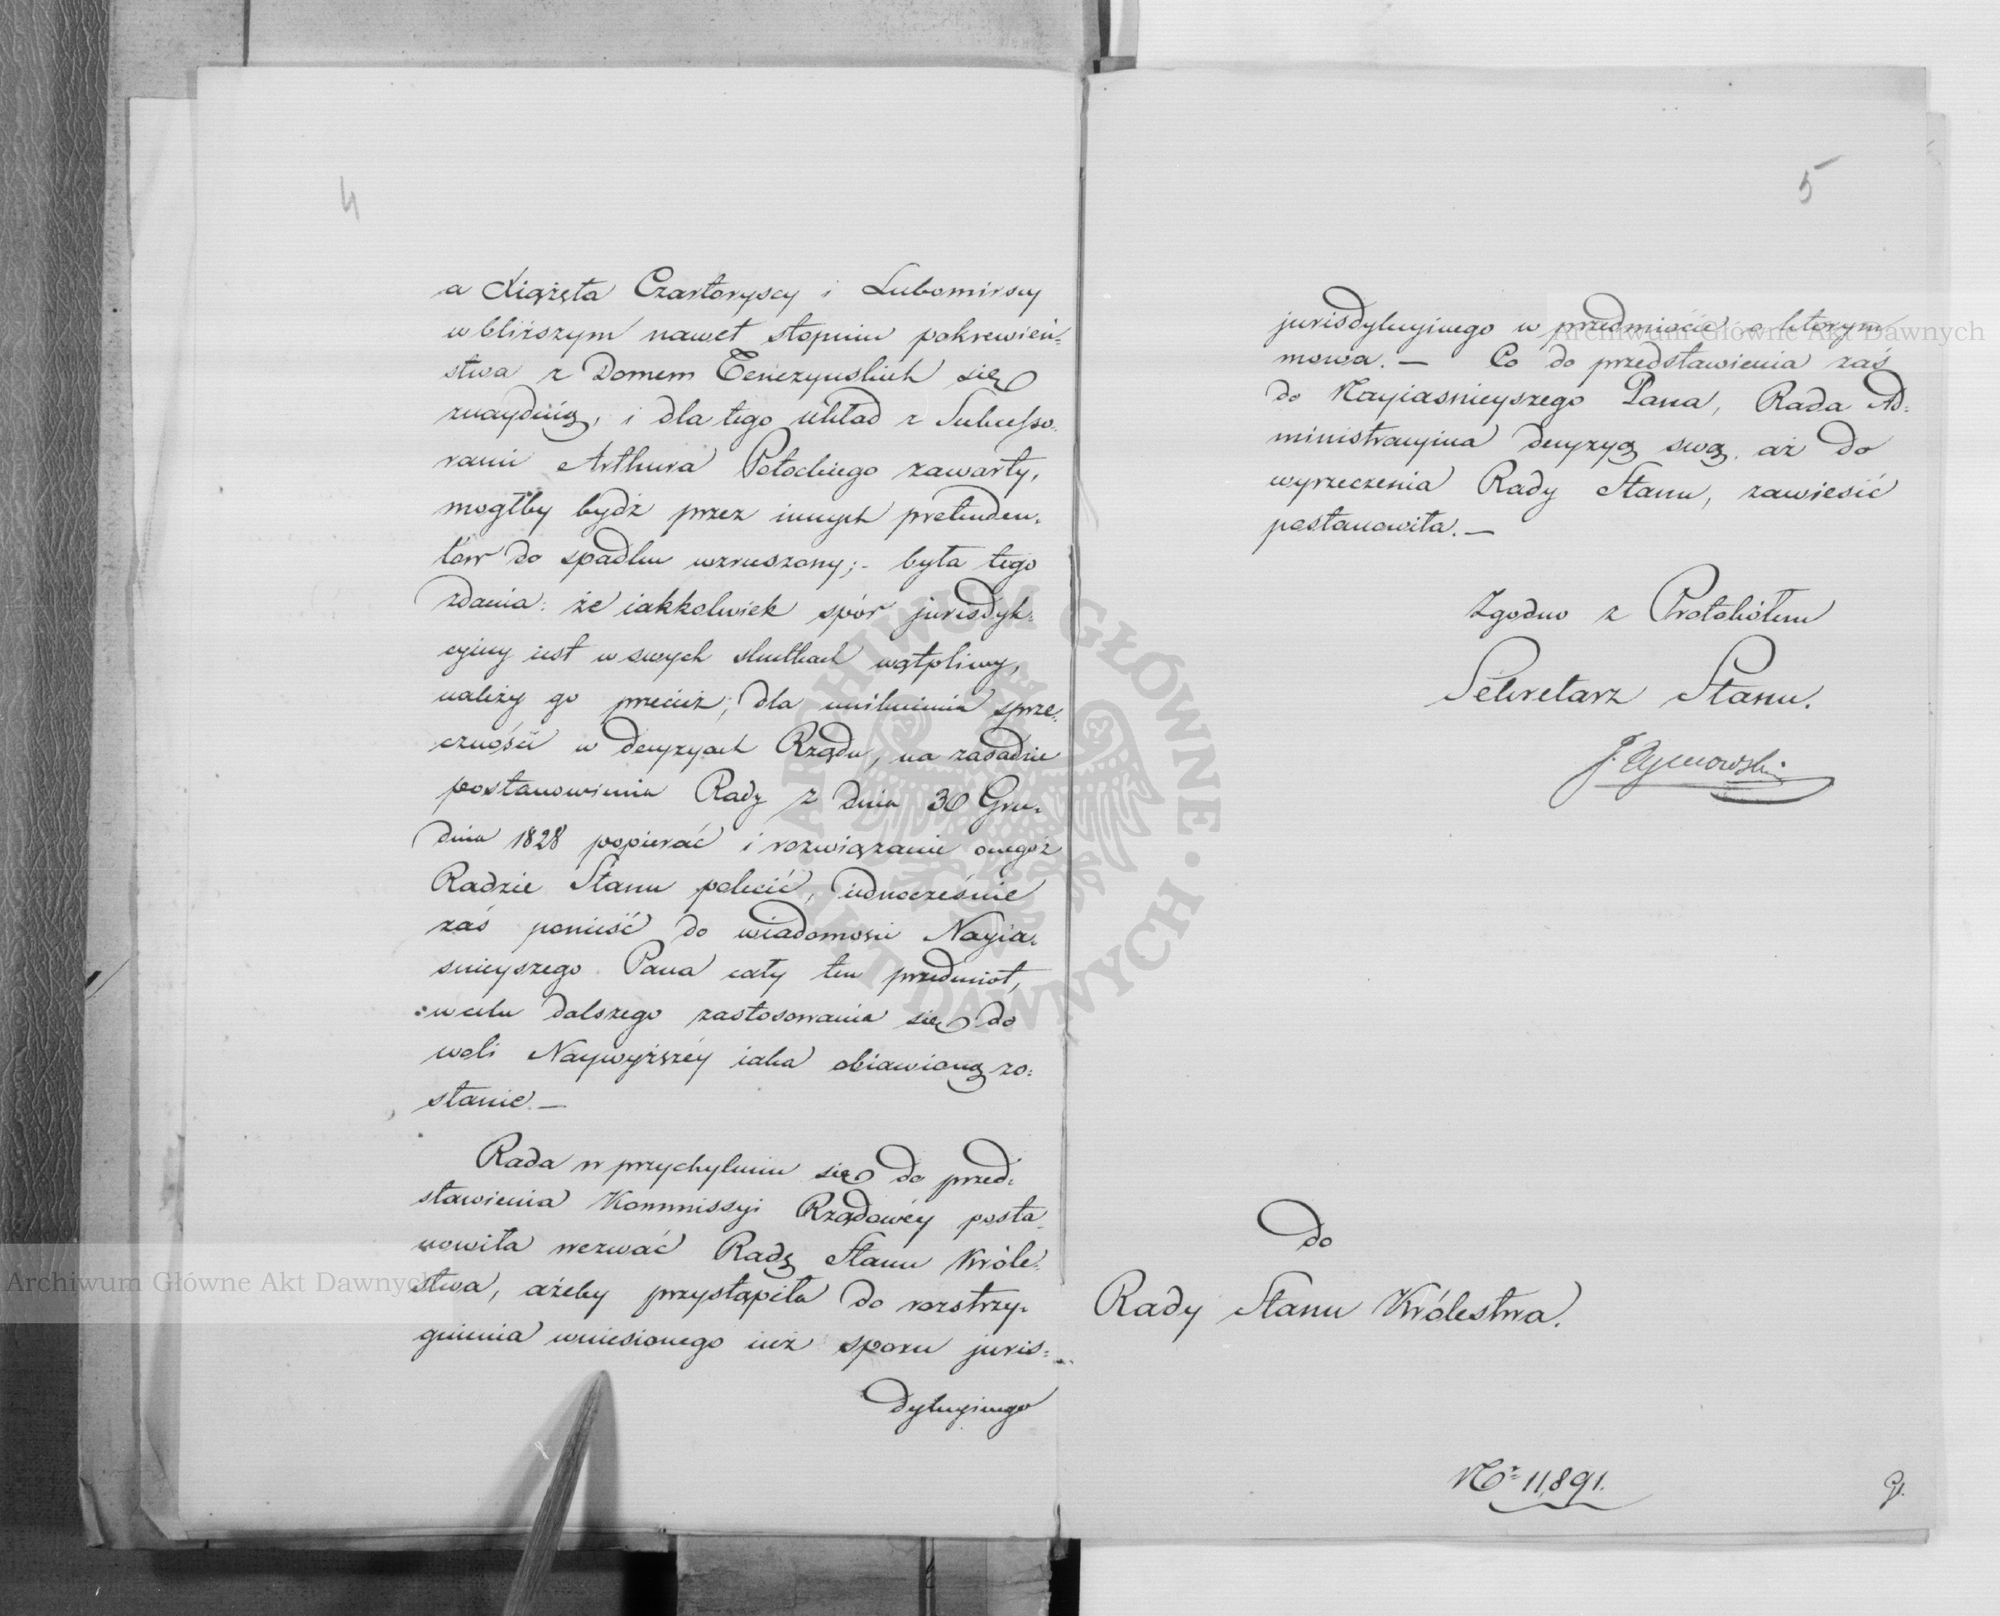 4
a Xiążęta Czartoryscy i Lubomirscy
w bliższym nawet stopniu pokrewień=
stwa z Domem Tenczyńskich się
znayduią, i dla tego układ z Sukcesso=
rami Arthura Potockiego zawarty,
mogłby bydź przez innych pretenden=
tów do spadku wzruszony;- była tego
zdania: że iakkolwiek spór jurisdyk=
cyiny iest w swych skutkach wątpliwy,
należy go przecież, dla uniknienia sprze=
czności w decyzyach Rządu, na zasadzie
postanowienia Rady z dnia 30 Gru=
dnia 1828 popierać i rozwiązanie onegoż
Radzie Stanu polecić, iednocześnie
zaś ponieść do wiadomości Nayia=
śnieyszego Pana cały ten przedmiot,
w celu dalszego zastosowania się do
woli Naywyższéy iaka obiawioną zo=
stanie.—
Rada w przychyleniu się do przed=
stawienia Kommissyi Rządowéy posta=
nowiła wezwać Radę Stanu Króle=
stwa, ażeby przystąpiła do rozstrzy=
gnienia wniesionego iuż sporu juris=
dykcyinego
5
jurisdykcyinego w przedmiocie o którym
mowa.— Co do przedstawienia zaś
do Nayiaśnieyszego Pana, Rada Ad=
ministracyina decyzyą swą, aż do
wyrzeczenia Rady Stanu, zawiesić
postanowiła.—
Zgodno z Protokółem
Sekretarz Stanu.
J. Tymowski
Do
Rady Stanu Królestwa.
No 11,891.
Archiwum Główne Akt Dawnych
Archiwum Główne Akt Dawnych
ARCHIWUM GŁÓWNE AKT DAWNYCH